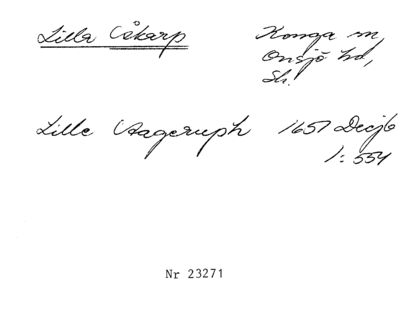 Lilla Åkarp
Konga sn,
Onsjö hd,
Sk.
Lille Aageruph 1657 Decjb
1: 554
Nr 23271